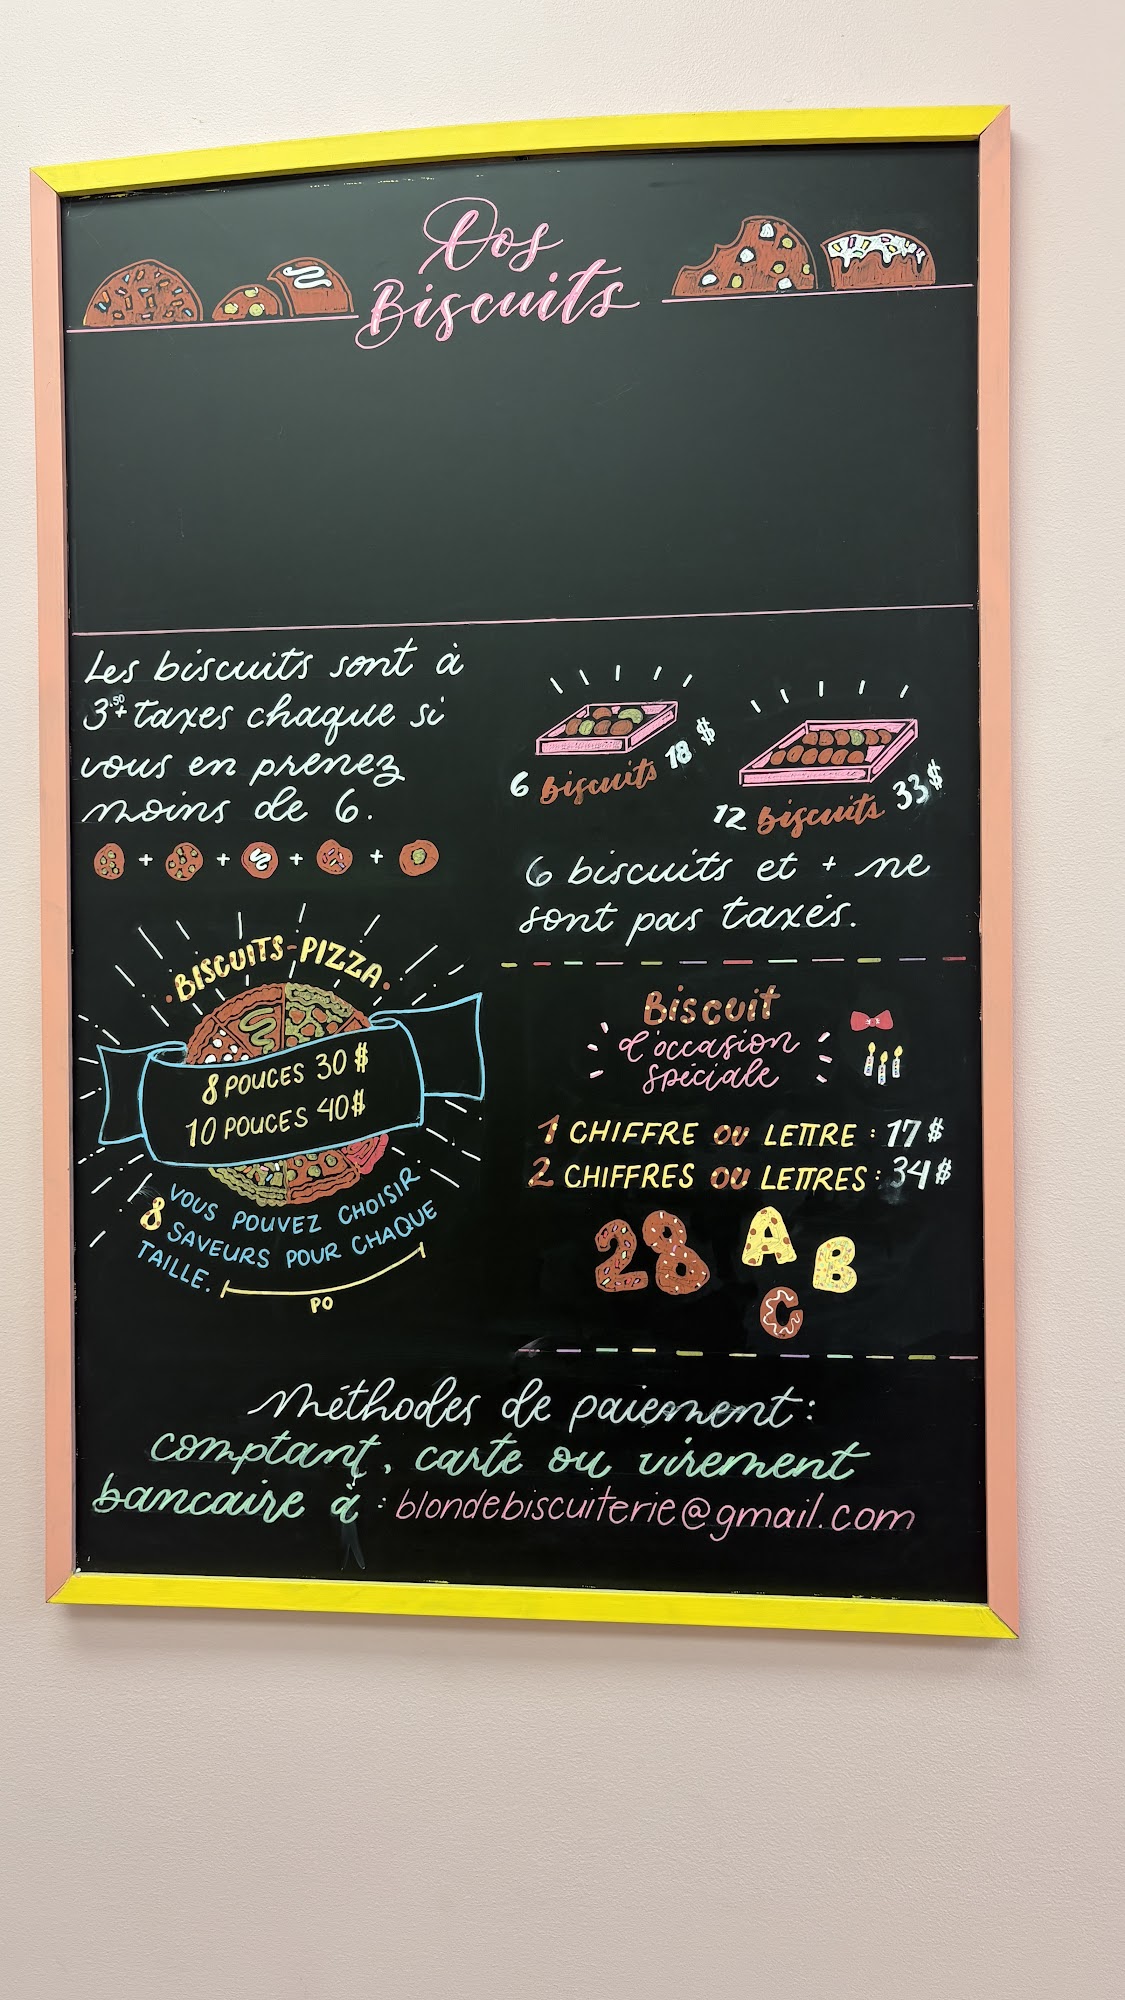 Vos
Biscuits
Les biscuits sont à
3.50 + taxes chaque si
vous en prenez
moins de 6.
+ + + +
6 Biscuits 18 $
12 Biscuits 33 $
6 biscuits et + ne
sont pas taxés.
BISCUITS-PIZZA
8 POUCES 30 $
10 POUCES 40 $
VOUS POUVEZ CHOISIR
8 SAVEURS POUR CHAQUE
TAILLE.
PO
Biscuit
d'occasion
spéciale
1 CHIFFRE OU LETTRE : 17 $
2 CHIFFRES OU LETTRES : 34 $
28 A B
C
Méthodes de paiement :
comptant, carte ou virement
bancaire à : blondebiscuiterie@gmail.com